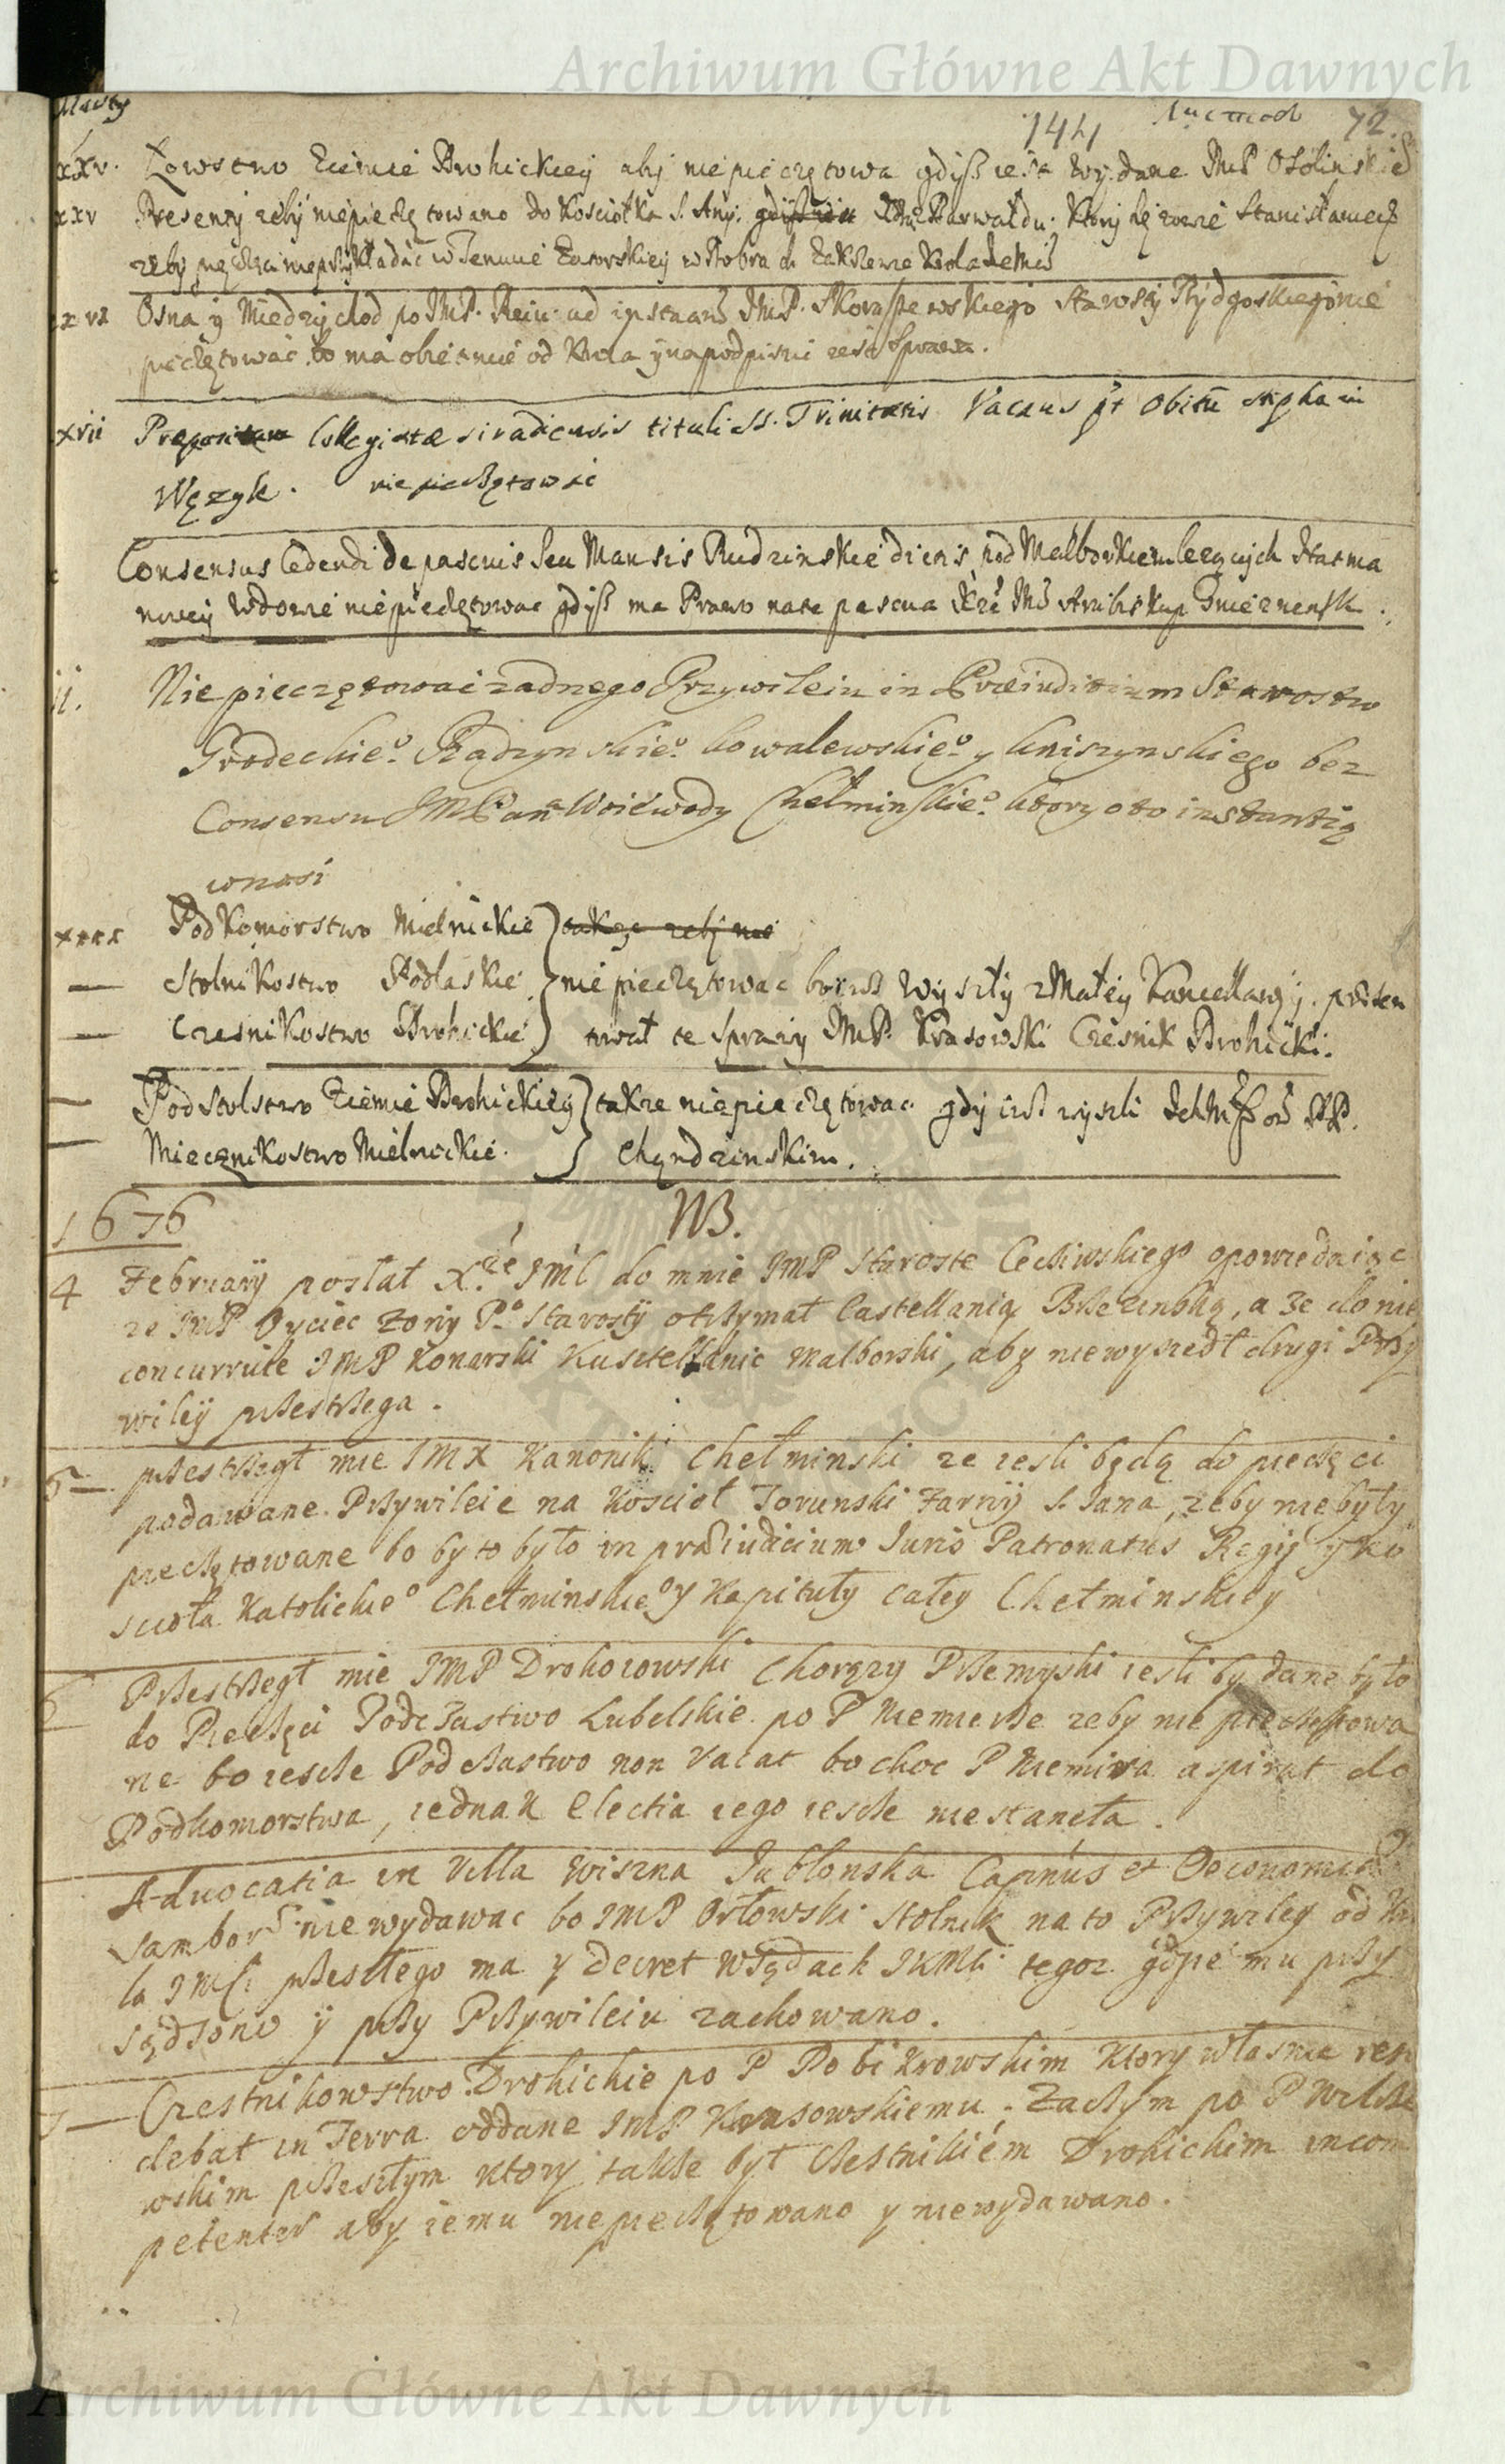 Archiwum Główne Akt Dawnych
144 72.
xxv. Łowstwo Ziemie Drohickiey aby niepieczętowa gdyß iest wydane JMP Osolinskie
xxv Presenty zeby niepieczętowano do Kosciołka S. Any. Xdze Parwałdu. Ktory się zowie Stanisławecz
zeby pieczęci nieprzykładac w Tenucie
xxvi Osna y Miedzychod po JMP. Reiu ad instan JMP. Skoraszewskiego Starosty Bydgoskiego nie
pieczętowac, bo ma obietnice od Krola y na podpisie iest
xvii Collegiatæ siradiensis tituli SS. Trinitatis Vacans pt obitū Stepha in
Węzyk. nie pieczętowac
Consensus Cedendi de pascuis seu Mansis Rudzinskie dictis pod Malborkiem lezących
nowey wdowie niepieczętowac gdyß ma Prawo na te pascua Xże Mć Arcibiskup Gnieznensk.
ii. Nie pieczętowac zadnego Przywileiu in Præiuditium Starostw
Grodeckieº. Radzynskieº. Kowalewskieº y Kniszynskiego bez
Consensu JMPana Woiewody Chełminskieº. ktory o to instantią
wnosi
Podkomorstwo Mielnickie } takze zeby nie
— Stolnikostwo Podlaskie } niepieczętowac bo iuß wyszły z Małey Kancellaryy.
— Czesnikostwo Drohickie } te sprawy JMP. Krasowski Czesnik Drohicki.
— Podstolstwo Ziemie Drohickiey } takze niepieczętowac gdy iuß wyszli
— Miecznikostwo Mielnickie. } Chądzinskim.
1676 NB.
4 February posłał Xże JMć do mnie JMP Staroste Cechiwskiego opowiedaiąc
ze JMP Oyciec Zony Pº Starosty otrzymał Castellanią Brzezinską, a ze do nie
concurruie JMP Konarski Kasztellanic Malborski, aby niewyszedł drugi Przy
wiley przestrzega.
5 — przestrzegł mie JMX Kanonik Chełminski ze iesli będą do pieczęci
podawane Przywileie na Koscioł Torunski Farny S. Jana, zeby nie były
pieczętowane bo by to było in præiudicium Juris Patronatus Regij y Ko
scioła Katolickieº Chełminskieº y Kapituły całey Chełminskiey
6 Przestrzegł mie JMP Drohoiowski Chorązy Przemyski iesli by dane było
do Pieczęci Podczastwo Lubelskie po P Niemierze zeby nie pieczętowa
ne bo ieszcze Podczastwo non vacat bo choc P Niemira aspirat do
Podkomorstwa, iednak Electia iego ieszcze niestaneła.
Advocatia in Villa Wiszna Jabłonska Capnus et Oeconomia
Sambor. niewydawac bo JMP Orłowski Stolnik na to Przywiley od Kro
la JMci przeszłego ma y Decret w Sądach JKMci tegoz gdzie mu przy
sądzono y przy Przywileiu zachowano.
7 — Czestnikowstwo Drohickie po P Dobikrowskim Ktory własnie resi
debat in Terra oddane JMP Krasowskiemu. Zaczym po P Wilcze
wskim przeszłym ktory takze był Czestnikiem Drohickim incom
petenter aby iemu niepieczętowano y niewydawano.
Archiwum Główne Akt Dawnych